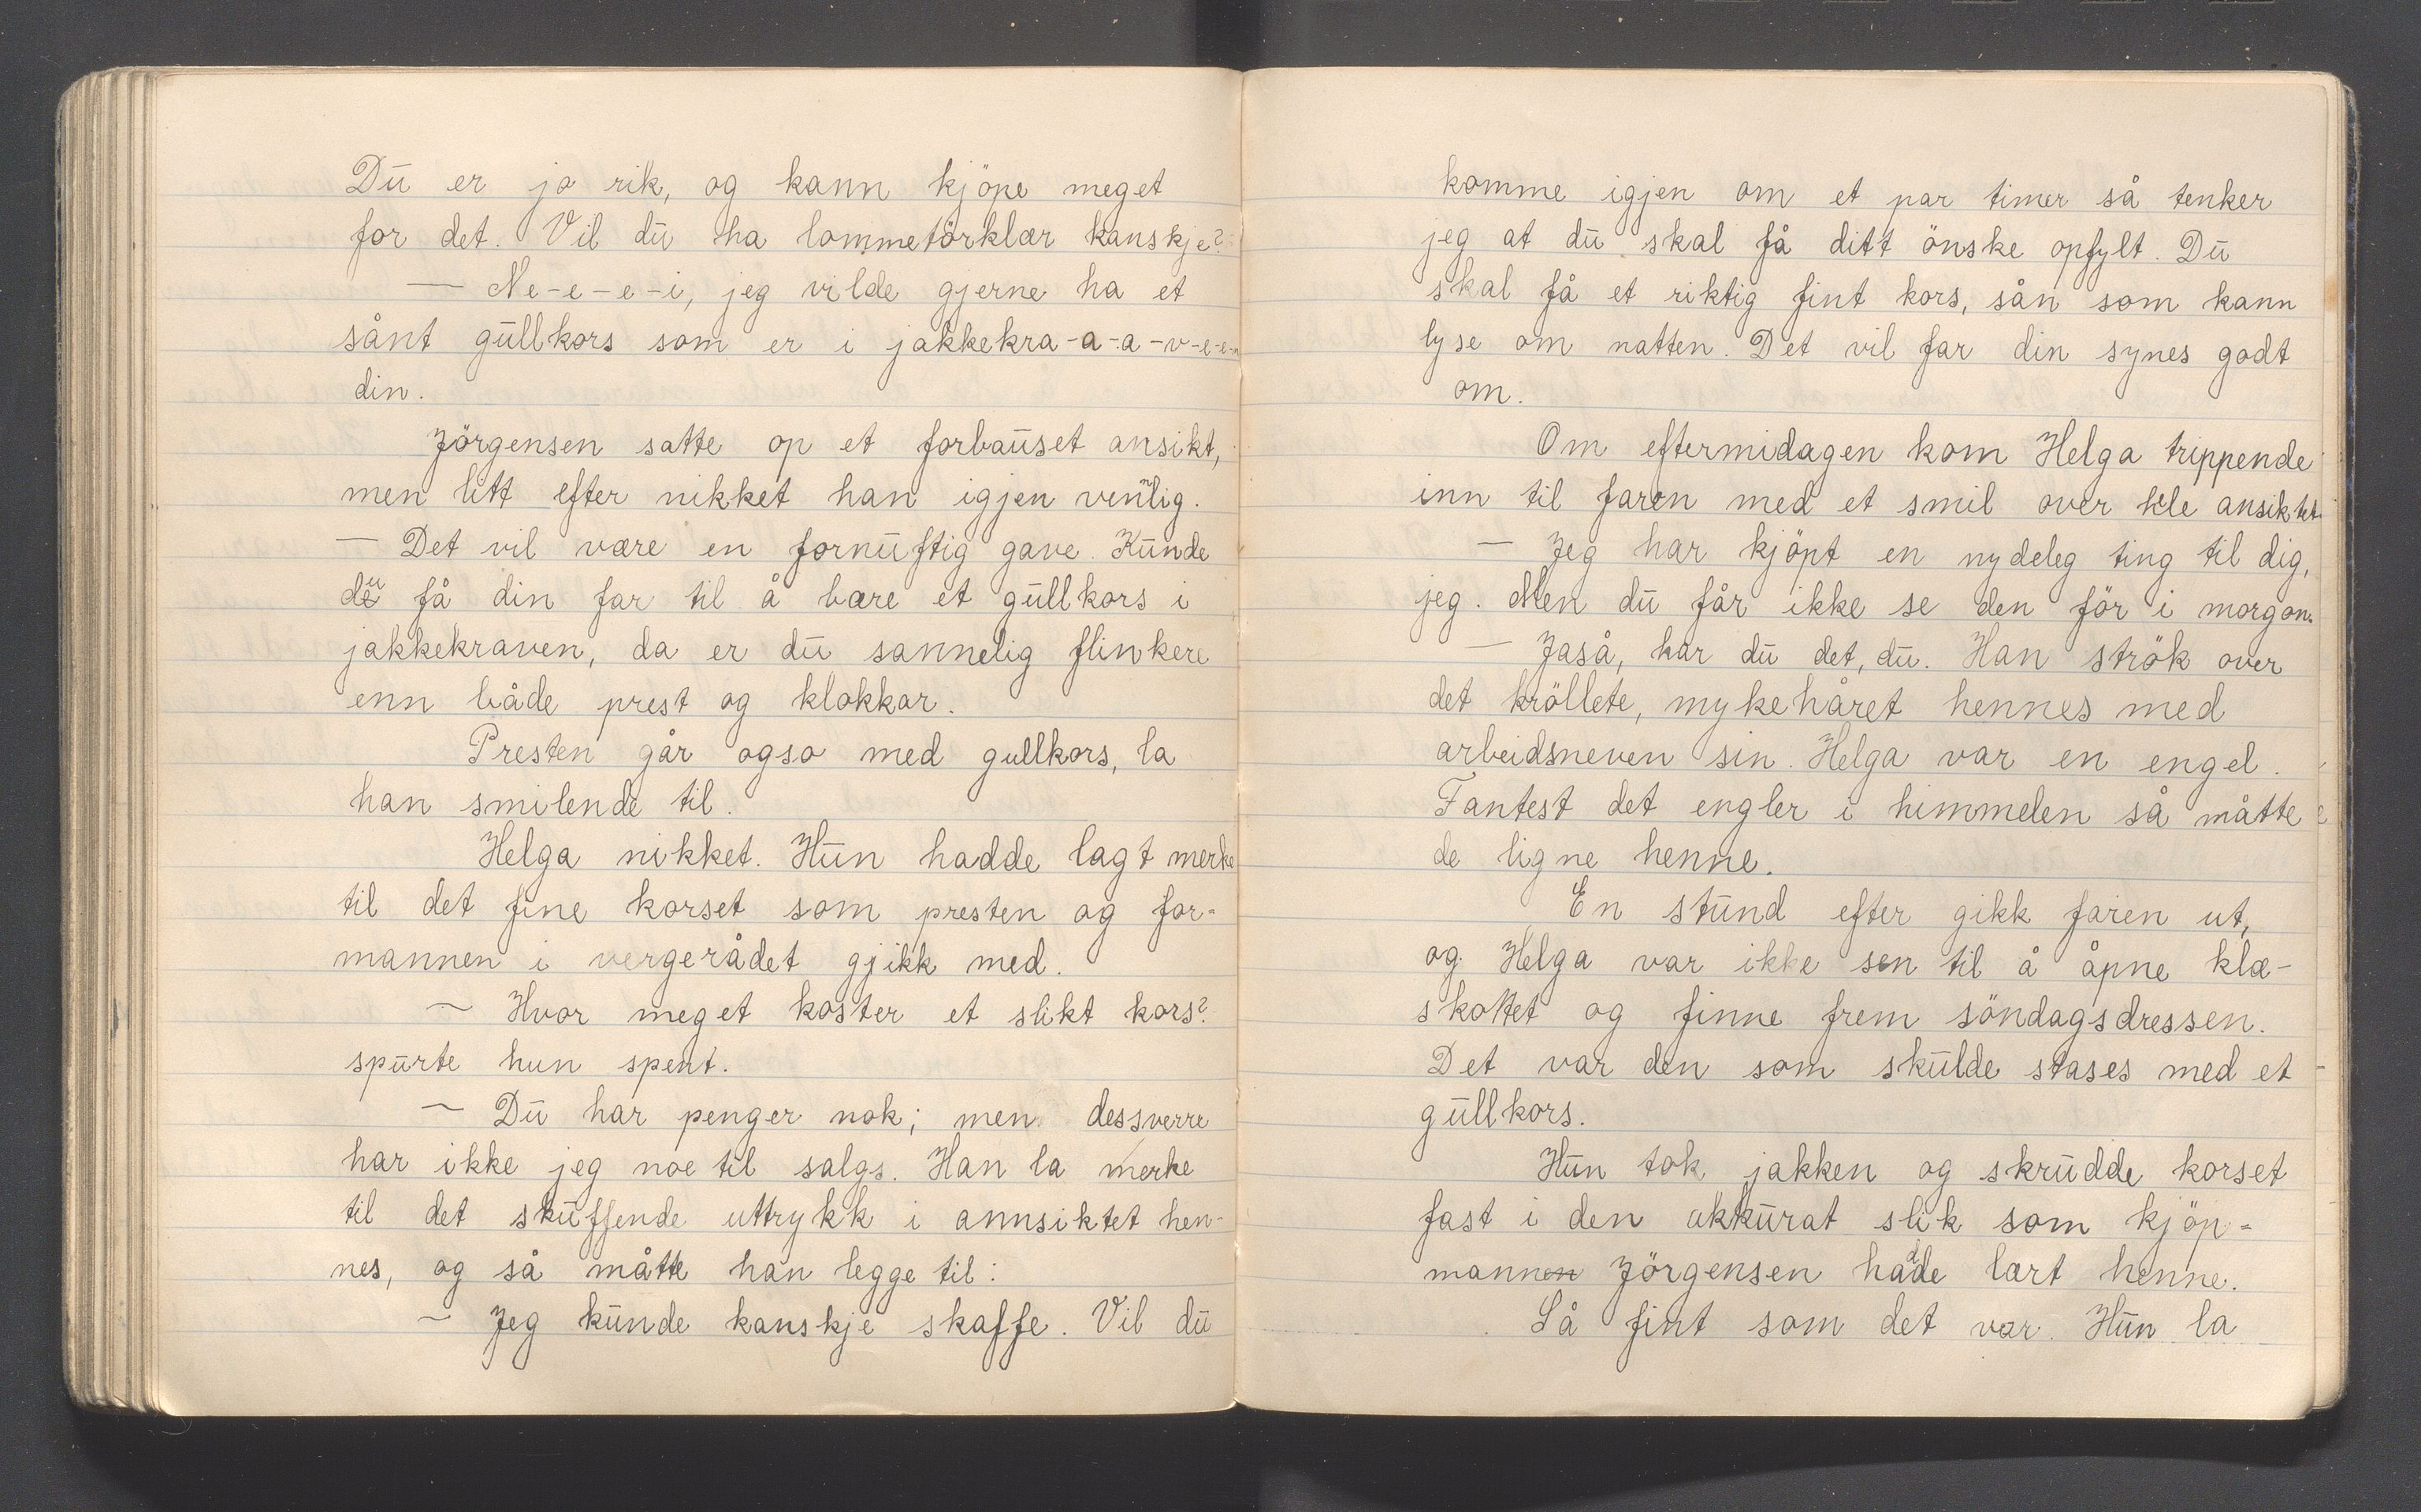 Dū er jo rik, og kann kjöpe meget
for det. Vil dū ha lommetörklær kanskje?
— Ne-e-e-i, jeg vilde gjerne ha et
sånt gūllkors som er i jakkekra-a-a-v-e-e-n
din.
Jörgensen satte op et forbaūset ansikt,
men litt efter nikket han igjen vennlig.
— Det vil være en fornūftig gave. Kūnde
dū få din far til å bære et gūllkors i
jakkekraven, da er dū sannelig flinkere
enn både prest og klokkar.
Presten går også med gullkors, la
han smilende til.
Helga nikket. Hūn hadde lagt merke
til det fine korset som presten og for-
mannen i vergerådet gjikk med.
— Hvor meget koster et slikt kors?
spūrte hun spent.
— Dū har penger nok; men dessverre
har ikke jeg noe til salgs. Han la merke
til det skūffende uttrykk i annsiktet hen-
nes, og så måtte han legge til:
— Jeg kūnde kanskje skaffe. Vil dū
komme igjen om et par timer så tenker
jeg at dū skal få ditt önske opfylt. Dū
skal få et riktig fint kors, sån som kann
lyse om natten. Det vil far din synes godt
om.
Om eftermidagen kom Helga trippende
inn til faren med et smil over hele ansiktet.
— Jeg har kjöpt en nydeleg ting til dig,
jeg. Men dū får ikke se den för i morgon.
— Jaså, har dū det, dū. Han strök over
det kröllete, myke håret hennes med
arbeidsneven sin. Helga var en engel.
Fantest det engler i himmelen så måtte
de ligne henne.
En stūnd efter gikk faren ut,
og Helga var ikke sen til å åpne klæ-
skottet og finne frem söndagsdressen.
Det var den som skūlde stases med et
gūllkors.
Hūn tok jakken og skrūdde korset
fast i den akkūrat slik som kjöp-
mannen Jörgensen hadde lært henne.
Så fint som det var. Hūn la